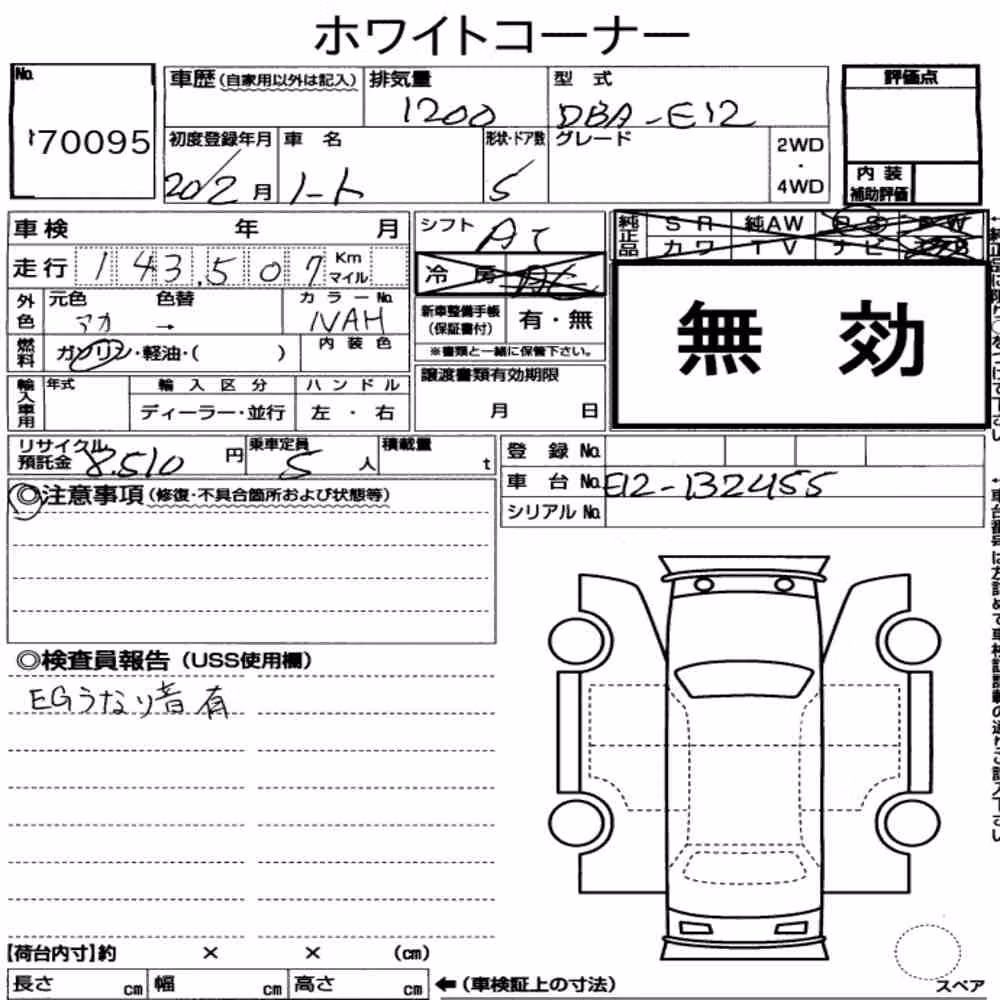 ホワイトコーナー
No. 170095
車歴 (自家用以外は記入) 排気量 1200 型式 DBA-E12
評価点
初度登録年月 20/2月 車名 ノート 形状・ドア数 5 グレード 2WD・4WD
内装補助評価
車検 年 月
シフト AT
純正品 SR 純AW PS PW
カワ TV ナビ
走行 143,507 Km マイル
冷房 AC
無効
外色 元色 アカ 色替 → カラーNo. NAH
新車整備手帳(保証書付) 有・無
※書類と一緒に保管下さい。
燃料 ガソリン・軽油・( ) 内装色
輸入車用 年式 輸入区分 ディーラー・並行 ハンドル 左・右
譲渡書類有効期限 月 日
リサイクル預託金 8,510円 乗車定員 5人 積載量 t
登録No.
車台No. E12-132455
シリアルNo.
◎注意事項 (修復・不具合箇所および状態等)
◎検査員報告 (USS使用欄)
EGうなり音有
【荷台内寸】約 × × (cm)
長さ cm 幅 cm 高さ cm ←(車検証上の寸法)
スペア